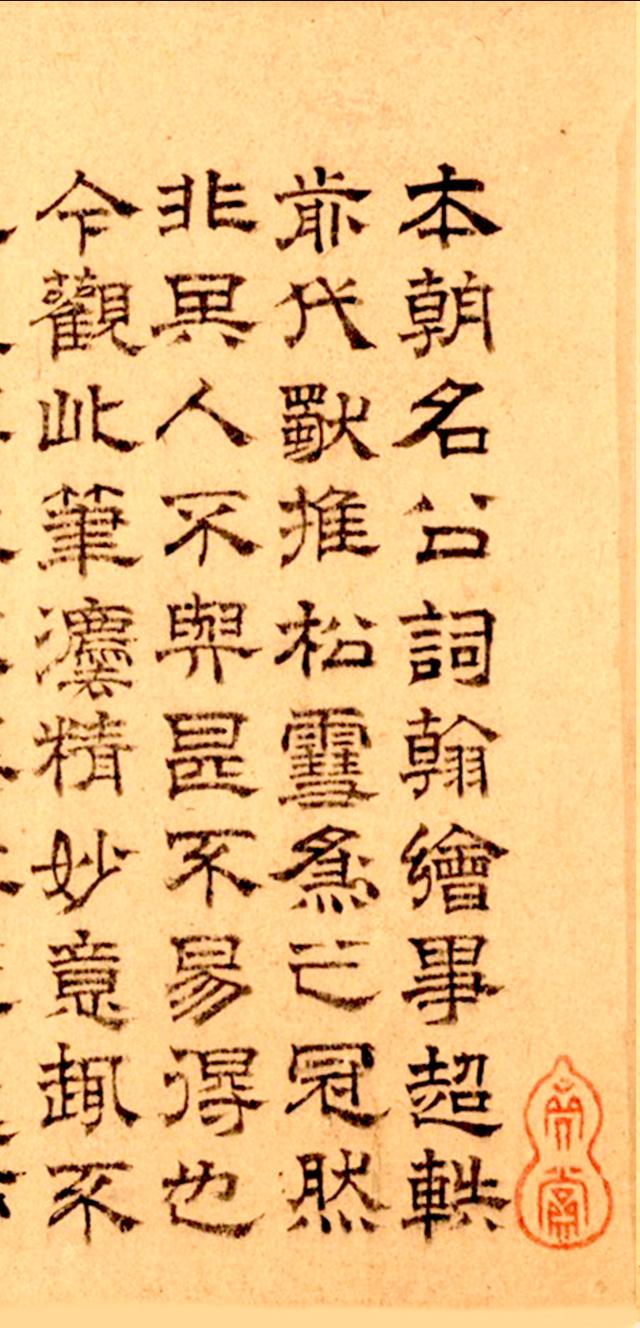 本朝名公詞翰繪事超軼
前代獨推松雪為之冠然
非其人不與甚不易得也
今觀此筆灋精妙意趣不